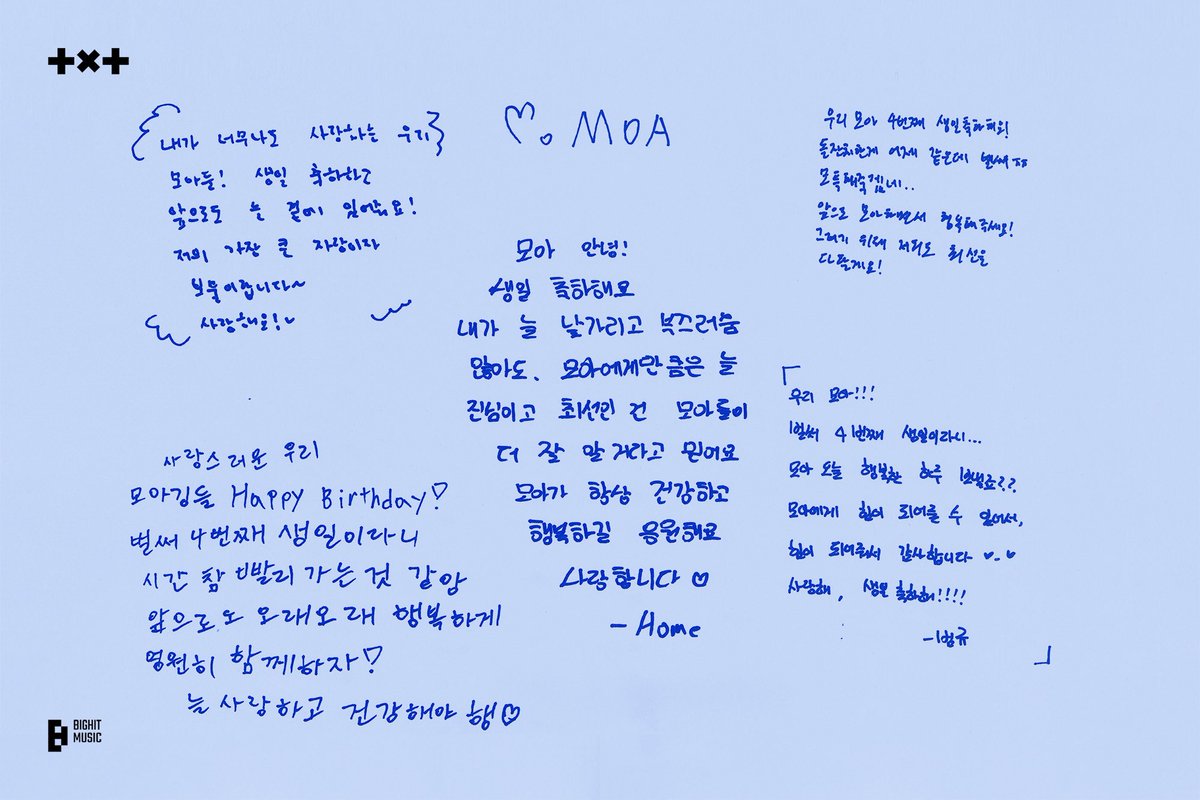 내가 너무나도 사랑하는 우리
모아들! 생일 축하하고
앞으로도 늘 곁에 있어줘요!
저의 가장 큰 자랑이자
보물이랍니다~
사랑해요!
MOA
모아 안녕!
생일 축하해요
내가 늘 낯가리고 부끄러움
많아도, 모아에게만큼은 늘
진심이고 최선인 건 모아들이
더 잘 알 거라고 믿어요
모아가 항상 건강하고
행복하길 응원해요
사랑합니다♡
- Home
우리 모아 4번째 생일축하해요!
돌잔치한게 어제 같은데 벌써 ㅠㅠ
앞으로 모아 행복해주세요!
그러기 위해 저희도 최선을
다할게요!
사랑스러운 우리
모아깅들 Happy Birthday♡
벌써 4번째 생일이라니
시간 참 빨리 가는 것 같아
앞으로도 오래오래 행복하게
영원히 함께하자♡
늘 사랑하고 건강해야 행♡
「우리 모아!!!
벌써 4번째 생일이라니...
모아 오늘 행복한 하루 보냈죠??
모아에게 힘이 되어줄 수 있어서,
힘이 되어줘서 감사합니다 ♡.♡
사랑해, 생일 축하해!!!!
-범규」
BIGHIT
MUSIC